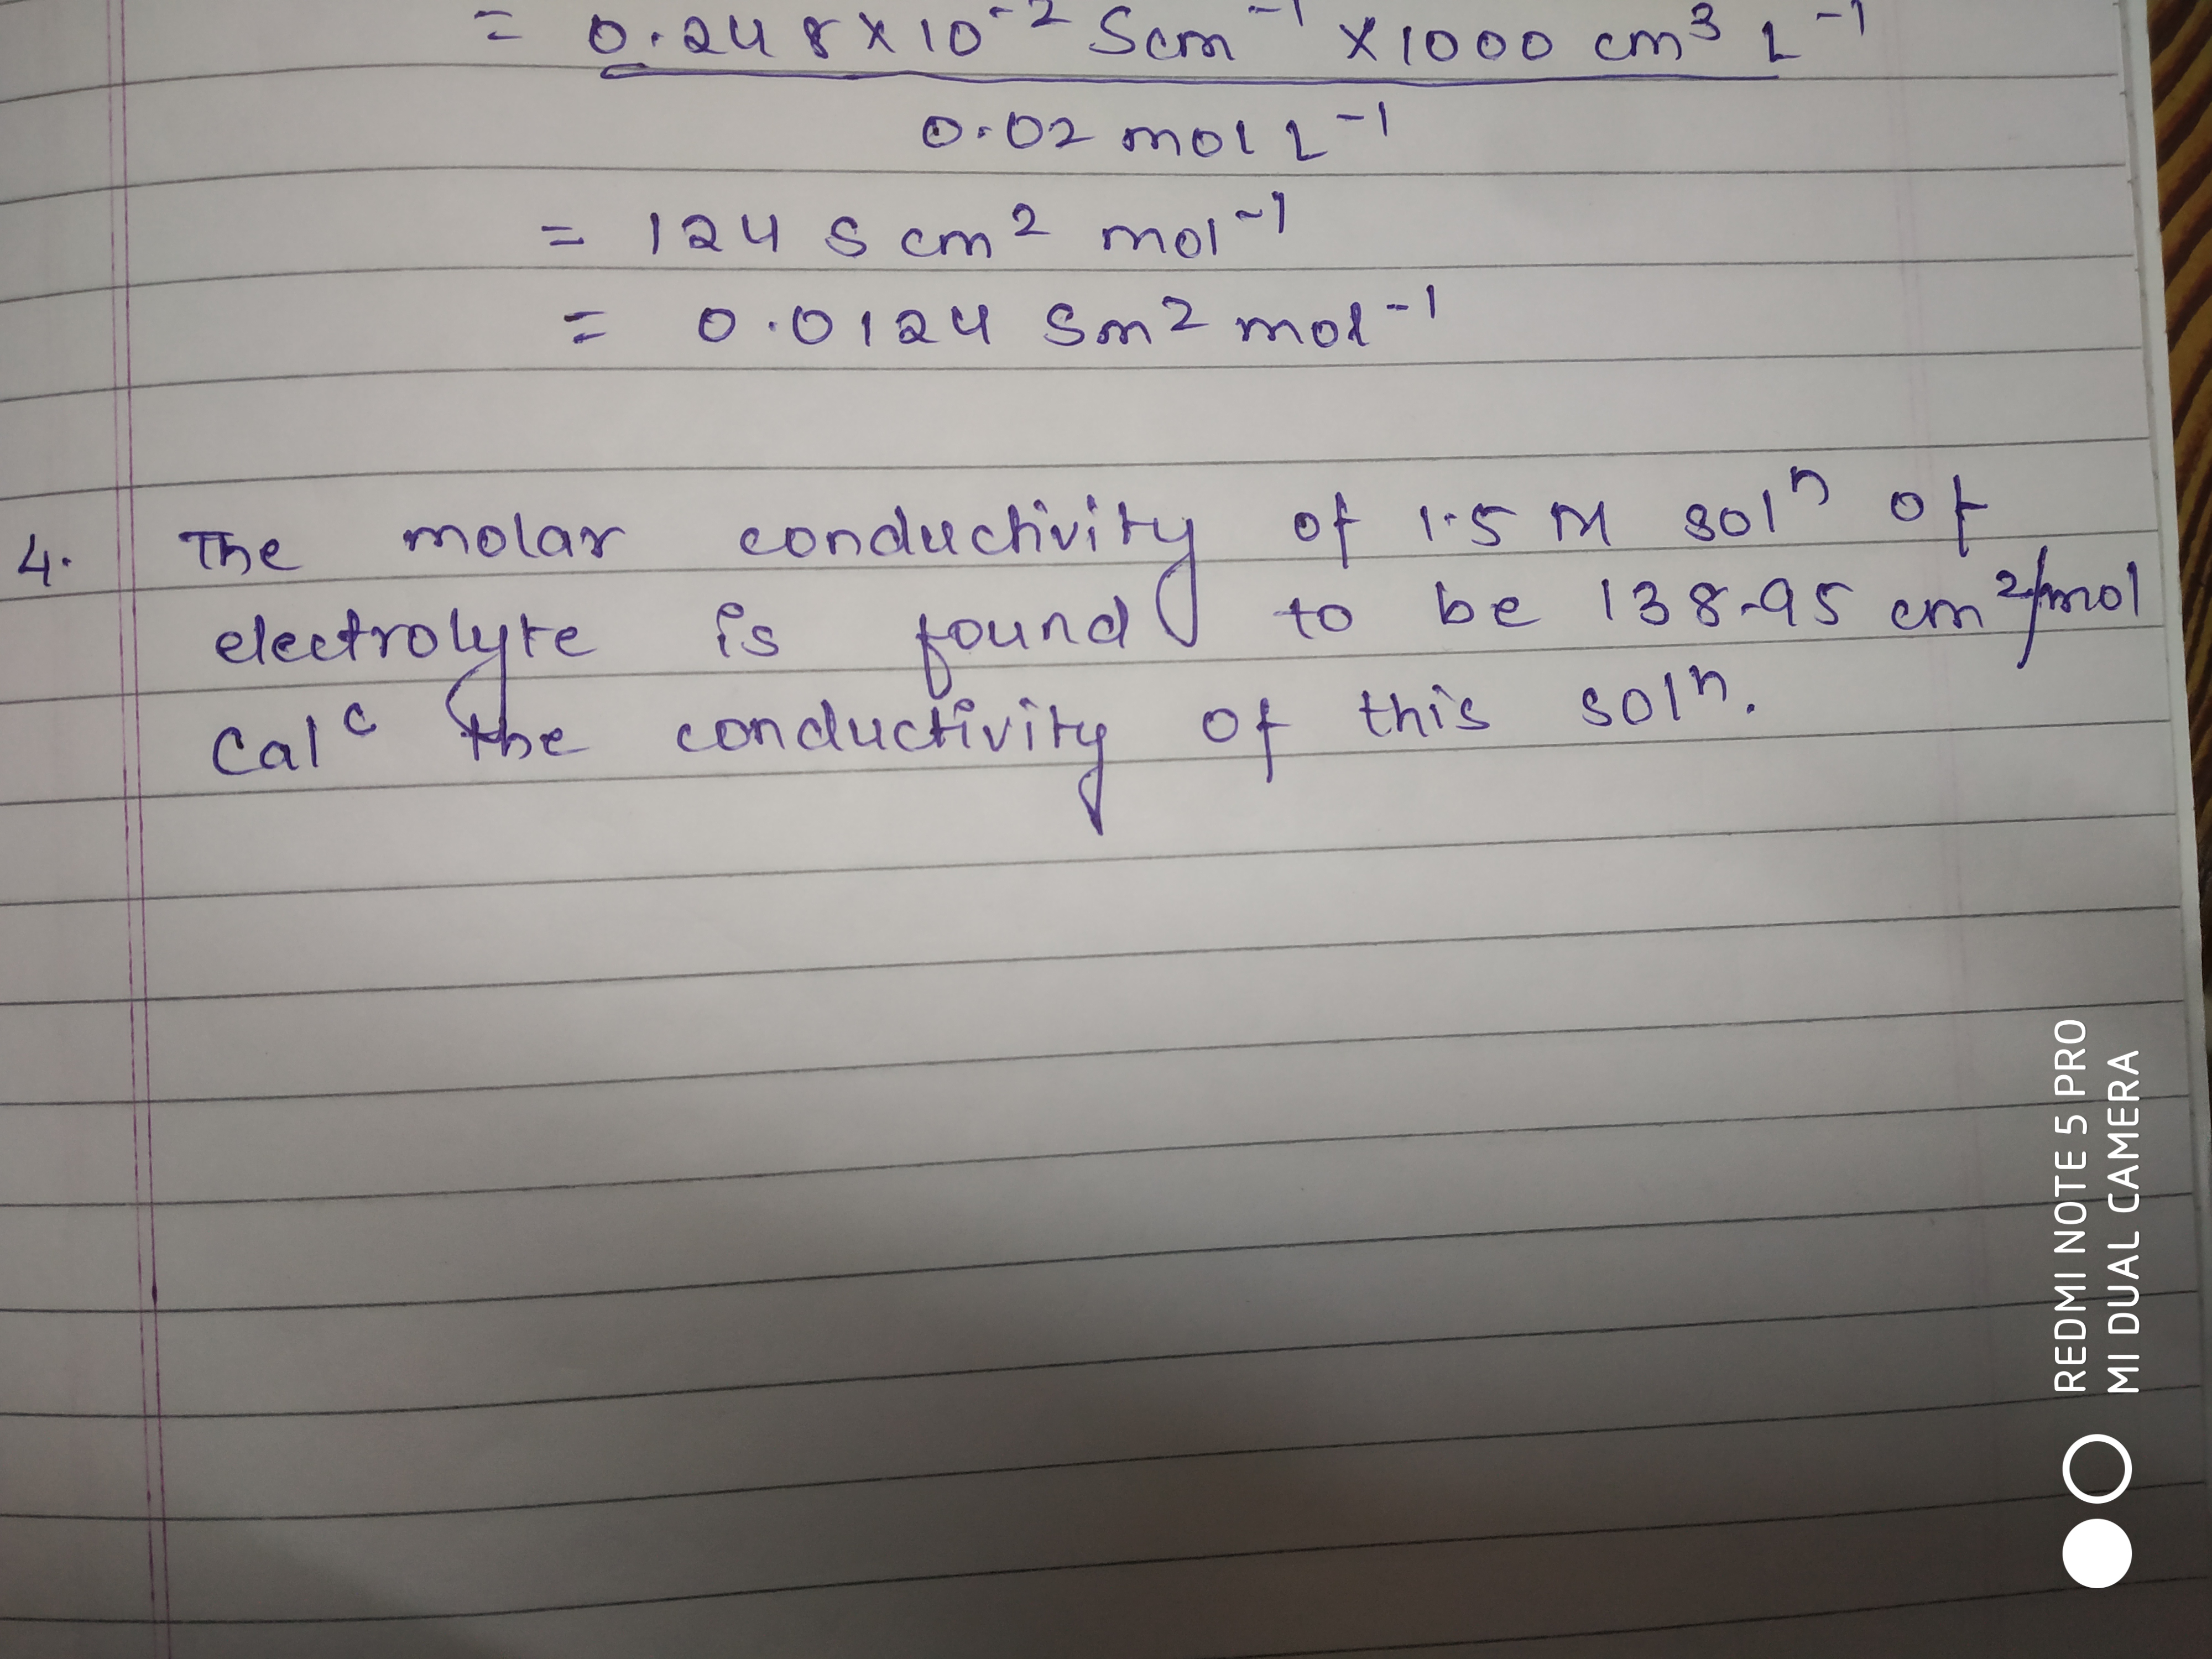 = 0.248 x 10⁻² Scm⁻¹ x 1000 cm³ L⁻¹
0.02 mol L⁻¹
= 124 S cm² mol⁻¹
= 0.0124 Sm² mol⁻¹
4. The molar conductivity of 1.5 M solⁿ of
electrolyte is found to be 138.95 cm²/mol
calᶜ the conductivity of this solⁿ.
REDMI NOTE 5 PRO
MI DUAL CAMERA